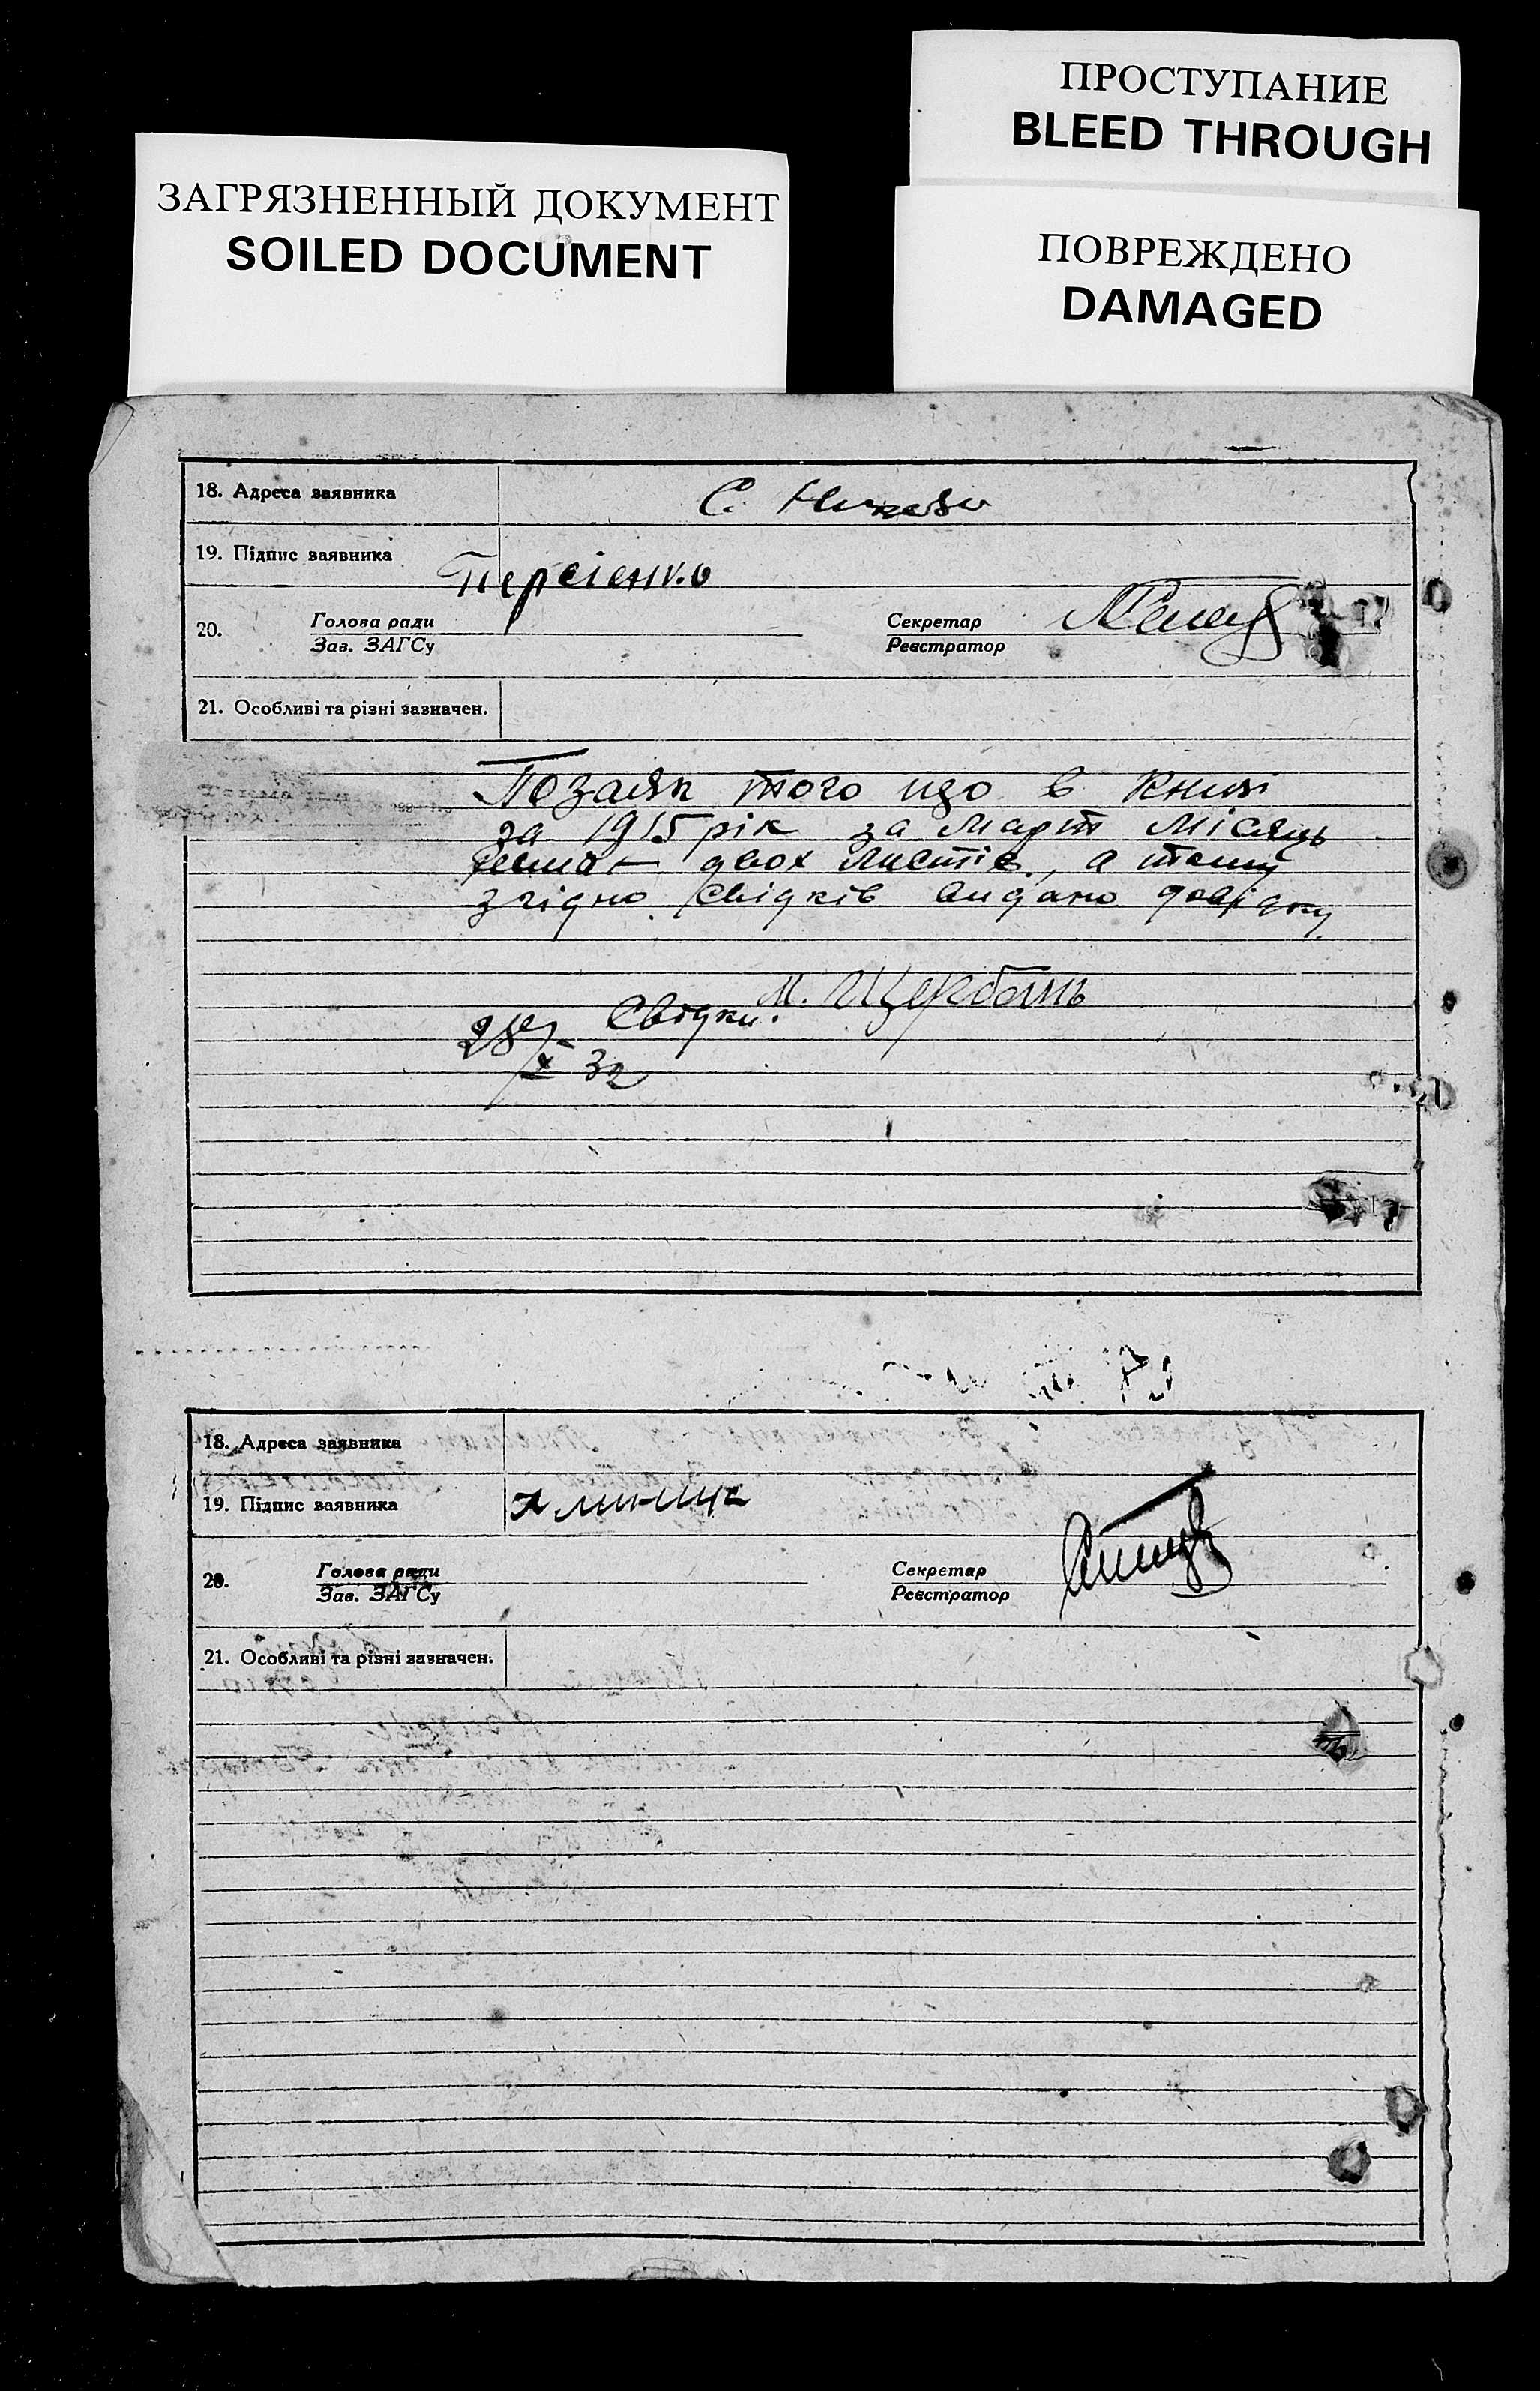 ПРОСТУПАНИЕ
BLEED THROUGH
ЗАГРЯЗНЕННЫЙ ДОКУМЕНТ
SOILED DOCUMENT
ПОВРЕЖДЕНО
DAMAGED
18. Адреса заявника С.
19. Підпис заявника Персіенко
20. Голова ради Секретар
Зав. ЗАГСу Реєстратор
21. Особливі та різні зазначен.
Позаяк того що в книзі
за 1915 рік за март місяць
нема двох листів, а тому
згідно свідків видано довідку
М. Щербань
Свідки:
28/X 32
18. Адреса заявника
19. Підпис заявника
20. Голова ради Секретар
Зав. ЗАГСу Реєстратор
21. Особливі та різні зазначен.